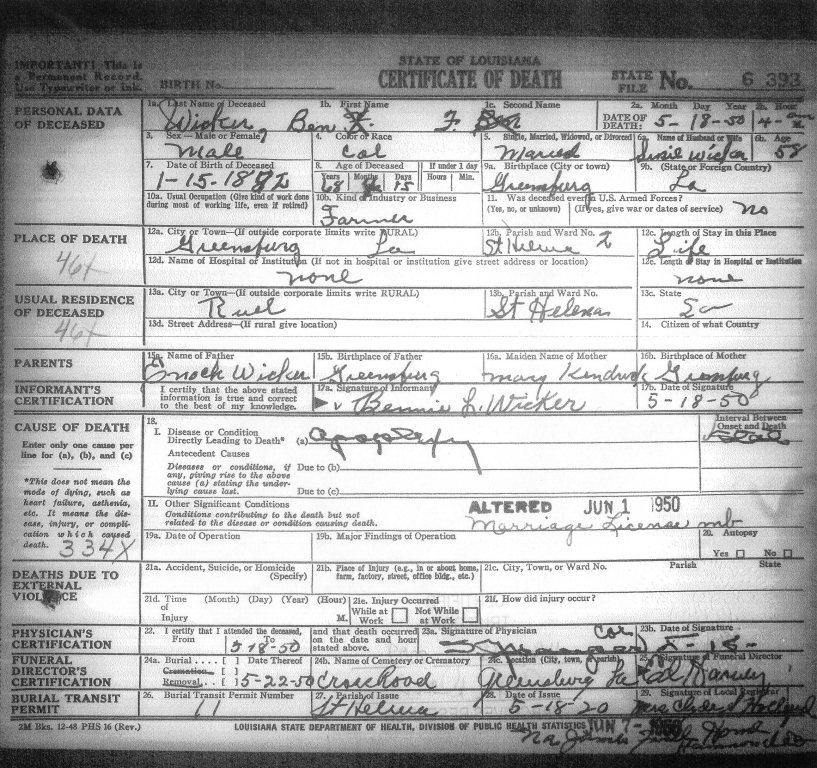 STATE OF LOUISIANA
CERTIFICATE OF DEATH
IMPORTANT! This is
a Permanent Record.
Use Typewriter or ink.
BIRTH No.
STATE
FILE No. 6 393
PERSONAL DATA
OF DECEASED
1a. Last Name of Deceased 1b. First Name 1c. Second Name 2a. Month Day Year 2b. Hour
Wicker, Ben F. DATE OF
DEATH: 5-18-50 4-
3. Sex—Male or Female 4. Color or Race 5. Single, Married, Widowed, or Divorced 6a. Name of Husband or Wife 6b. Age
Male Col Married Wicker 58
7. Date of Birth of Deceased 8. Age of Deceased If under 1 day 9a. Birthplace (City or town) 9b. (State or Foreign Country)
Years Months Days Hours Min.
1-15-1882 68 15 Greensburg La
10a. Usual Occupation (Give kind of work done
during most of working life, even if retired) 10b. Kind of Industry or Business 11. Was deceased ever in U.S. Armed Forces?
(Yes, no, or unknown) (If yes, give war or dates of service) no
Farmer
PLACE OF DEATH
12a. City or Town—(If outside corporate limits write RURAL) 12b. Parish and Ward No. 12c. Length of Stay in this Place
Greensburg La St Helena 2 Life
12d. Name of Hospital or Institution (If not in hospital or institution give street address or location) 12e. Length of Stay in Hospital or Institution
46+ none none
USUAL RESIDENCE
OF DECEASED
13a. City or Town—(If outside corporate limits write RURAL) 13b. Parish and Ward No. 13c. State
Rual St Helena La
46+
13d. Street Address—(If rural give location) 14. Citizen of what Country
PARENTS
15a. Name of Father 15b. Birthplace of Father 16a. Maiden Name of Mother 16b. Birthplace of Mother
Enock Wicker Greensburg Mary Greensburg
INFORMANT'S
CERTIFICATION
I certify that the above stated
information is true and correct
to the best of my knowledge.
17a. Signature of Informant 17b. Date of Signature
Bennie L. Wicker 5-18-50
CAUSE OF DEATH
Enter only one cause per
line for (a), (b), and (c)
*This does not mean the
mode of dying, such as
heart failure, asthenia,
etc. It means the dis-
ease, injury, or compli-
cation which caused
death. 334X
18. Interval Between
Onset and Death
I. Disease or Condition
Directly Leading to Death* (a)
Antecedent Causes
Diseases or conditions, if
any, giving rise to the above
cause (a) stating the under-
lying cause last.
Due to (b)
Due to (c)
II. Other Significant Conditions
Conditions contributing to the death but not
related to the disease or condition causing death.
ALTERED JUN 1 1950
Marriage License mb
19a. Date of Operation 19b. Major Findings of Operation 20. Autopsy
Yes No
DEATHS DUE TO
EXTERNAL
VIOLENCE
21a. Accident, Suicide, or Homicide
(Specify) 21b. Place of Injury (e.g., in or about home,
farm, factory, street, office bldg., etc.) 21c. City, Town, or Ward No. Parish State
21d. Time (Month) (Day) (Year) (Hour)
of
Injury M. 21e. Injury Occurred
While at
Work Not While
at Work 21f. How did injury occur?
PHYSICIAN'S
CERTIFICATION
22. I certify that I attended the deceased,
From To
5-18-50
and that death occurred
on the date and hour
stated above.
23a. Signature of Physician 23b. Date of Signature
Cor 5-18-
FUNERAL
DIRECTOR'S
CERTIFICATION
24a. Burial .... [ ] Date Thereof 24b. Name of Cemetery or Crematory 24c. Location (City, town, parish) 25. Signature of Funeral Director
Cremation.. [ ]
Removal... [ ] 5-22-50 Crossroad Greensburg La
BURIAL TRANSIT
PERMIT
26. Burial Transit Permit Number 27. Parish of Issue 28. Date of Issue 29. Signature of Local Registrar
11 St Helena 5-18-20 Mrs
2M Bks. 12-48 PHS 16 (Rev.) LOUISIANA STATE DEPARTMENT OF HEALTH, DIVISION OF PUBLIC HEALTH STATISTICS JUN 7- 1950